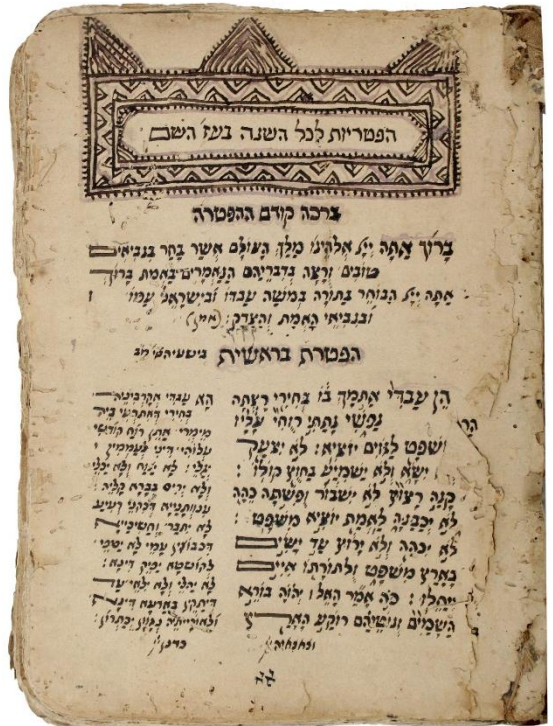 הפטריות לכל השנה בעז השם
ברכה קודם ההפטרה
ברוך אתה ייי אלהינו מלך העולם אשר בחר בנביאים
טובים ורצה בדבריהם הנאמרים באמת ברוך
אתה ייי הבוחר בתורה במשה עבדו ובישראל עמו
ובנביאי האמת והצדק: (אמן)
הפטרת בראשית בישעיה
הן עבדי אתמך בו בחירי רצתה
נפשי נתתי רוחי עליו
משפט לגוים יוציא: לא יצעק
ישא ולא ישמיע בחוץ קולו:
קנה רצוץ לא ישבור ופשתה כהה
לא יכבנה לאמת יוציא משפט:
לא יכהה ולא ירוץ עד ישים
בארץ משפט ולתורתו איים
ייחלו: כה אמר האל יהוה בורא
השמים ונוטיהם רוקע הארץ
הא עבדי אקרביניה
בחירי דאתרעי ביה
מימרי אתן רוח קודשי
עלוהי דיני לעממין
יגלי: לא יצוח ולא יכלי
ולא ירים בברא קליה:
ענותניא דכקני רעיע
לא יתבר וחשיכיא
דכבוצין עמי לא יטפי
לקושטא יפיק דינה:
לא יהלי ולא ילאי עד
דיתקן בארעא דינא
ולאורייתיה נגוון יכתרון:
כדנן